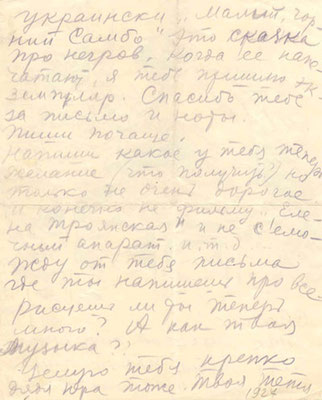 украински „Малый, чор-
ний Самбо" это сказка
про негров. Когда её напе-
чатают, я тебе пришлю эк-
земпляр. Спасибо тебе
за письмо и ноты.
Пиши почаще.
Напиши какое у тебя теперь
желание (что получить) но
только не очень дорогое
и конечно не фильму „Еле-
на Троянская" и не с'емо-
чный апарат и.т.д
Жду от тебя письма
где ты напишешь про все
Рисуешь ли ты теперь
много? А как твоя
музыка?
Целую тебя крепко
дядя Юра тоже. Твоя тетя